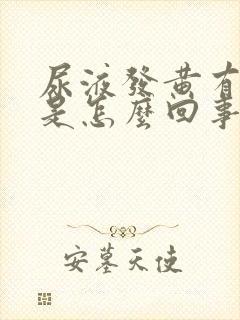 尿液發黄有
是怎麼回事
安墓天使